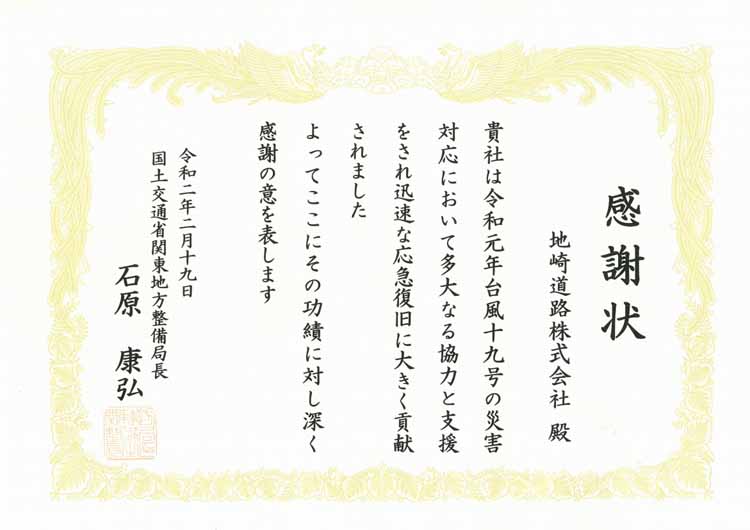 感謝状
地崎道路株式会社 殿
貴社は令和元年台風十九号の災害
対応において多大なる協力と支援
をされ迅速な応急復旧に大きく貢献
されました
よってここにその功績に対し深く
感謝の意を表します
令和二年二月十九日
国土交通省関東地方整備局長
石原 康弘